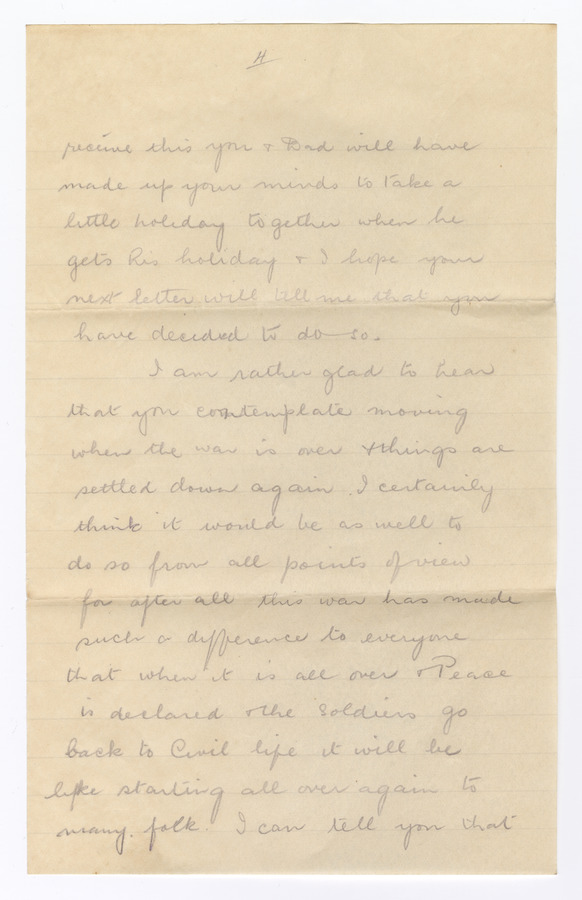 4
receive this you & Dad will have
made up your minds to take a
little holiday together when he
gets his holiday & I hope your
next letter will tell me that you
have decided to do so.
I am rather glad to hear
that you contemplate moving
when the war is over & things are
settled down again. I certainly
think it would be as well to
do so from all points of view
for after all this war has made
such a difference to everyone
that when it is all over & Peace
is declared & the Soldiers go
back to Civil life it will be
like starting all over again to
many folk. I can tell you that